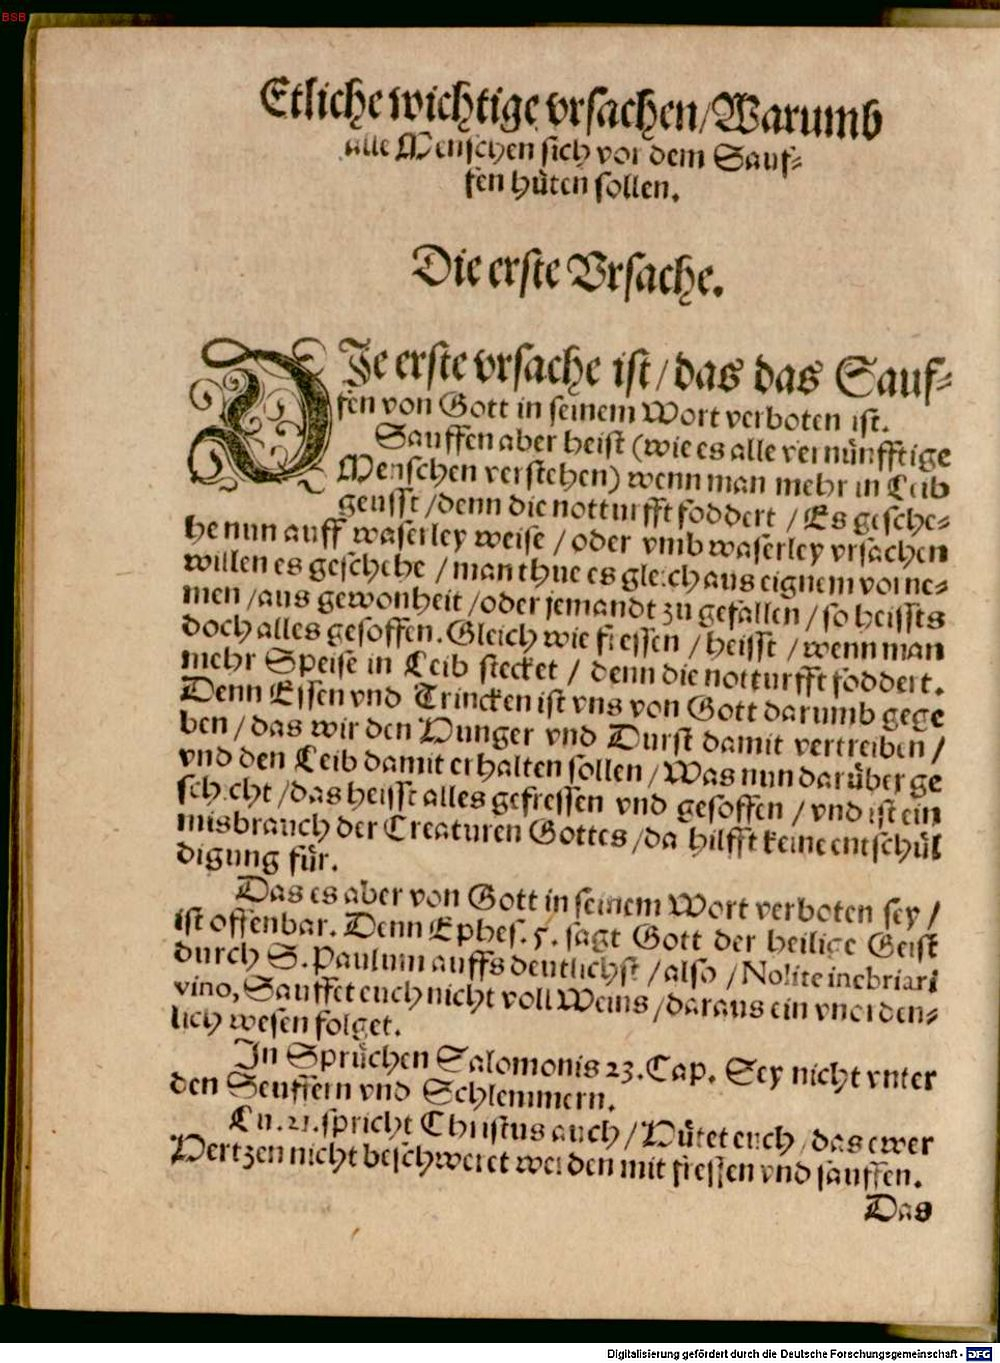 BSB
Etliche wichtige vrsachen / Warumb
alle Menschen sich vor dem Sauf-
fen hüten sollen.
Die erste Vrsache.
DIe erste vrsache ist / das das Sauf-
fen von Gott in seinem Wort verboten ist.
Sauffen aber heist (wie es alle vernünfftige
Menschen verstehen) wenn man mehr in Leib
geusst / denn die notturfft foddert / Es gesche-
he nun auff waserley weise / oder vmb waserley vrsachen
willen es geschehe / man thue es gleich aus eignem vorne-
men / aus gewonheit / oder jemandt zu gefallen / so heissts
doch alles gesoffen. Gleich wie fressen / heisst / wenn man
mehr Speise in Leib stecket / denn die notturfft foddert.
Denn Essen vnd Trincken ist vns von Gott darumb gege
ben / das wir den Hunger vnd Durst damit vertreiben /
vnd den Leib damit erhalten sollen / Was nun darüber ge
schicht / das heisst alles gefressen vnd gesoffen / vnd ist ein
misbrauch der Creaturen Gottes / da hilfft keine entschül
digung für.
Das es aber von Gott in seinem Wort verboten sey /
ist offenbar. Denn Ephes. 5. sagt Gott der heilige Geist
durch S. Paulum auffs deutlichst / also / Nolite inebriari
vino, Sauffet euch nicht voll Weins / daraus ein vnorden-
lich wesen folget.
In Sprüchen Salomonis 23. Cap. Sey nicht vnter
den Seuffern vnd Schlemmern.
Lu. 21. spricht Christus auch / Hütet euch / das ewer
Hertzen nicht beschweret werden mit fressen vnd sauffen.
Das
Digitalisierung gefördert durch die Deutsche Forschungsgemeinschaft - DFG